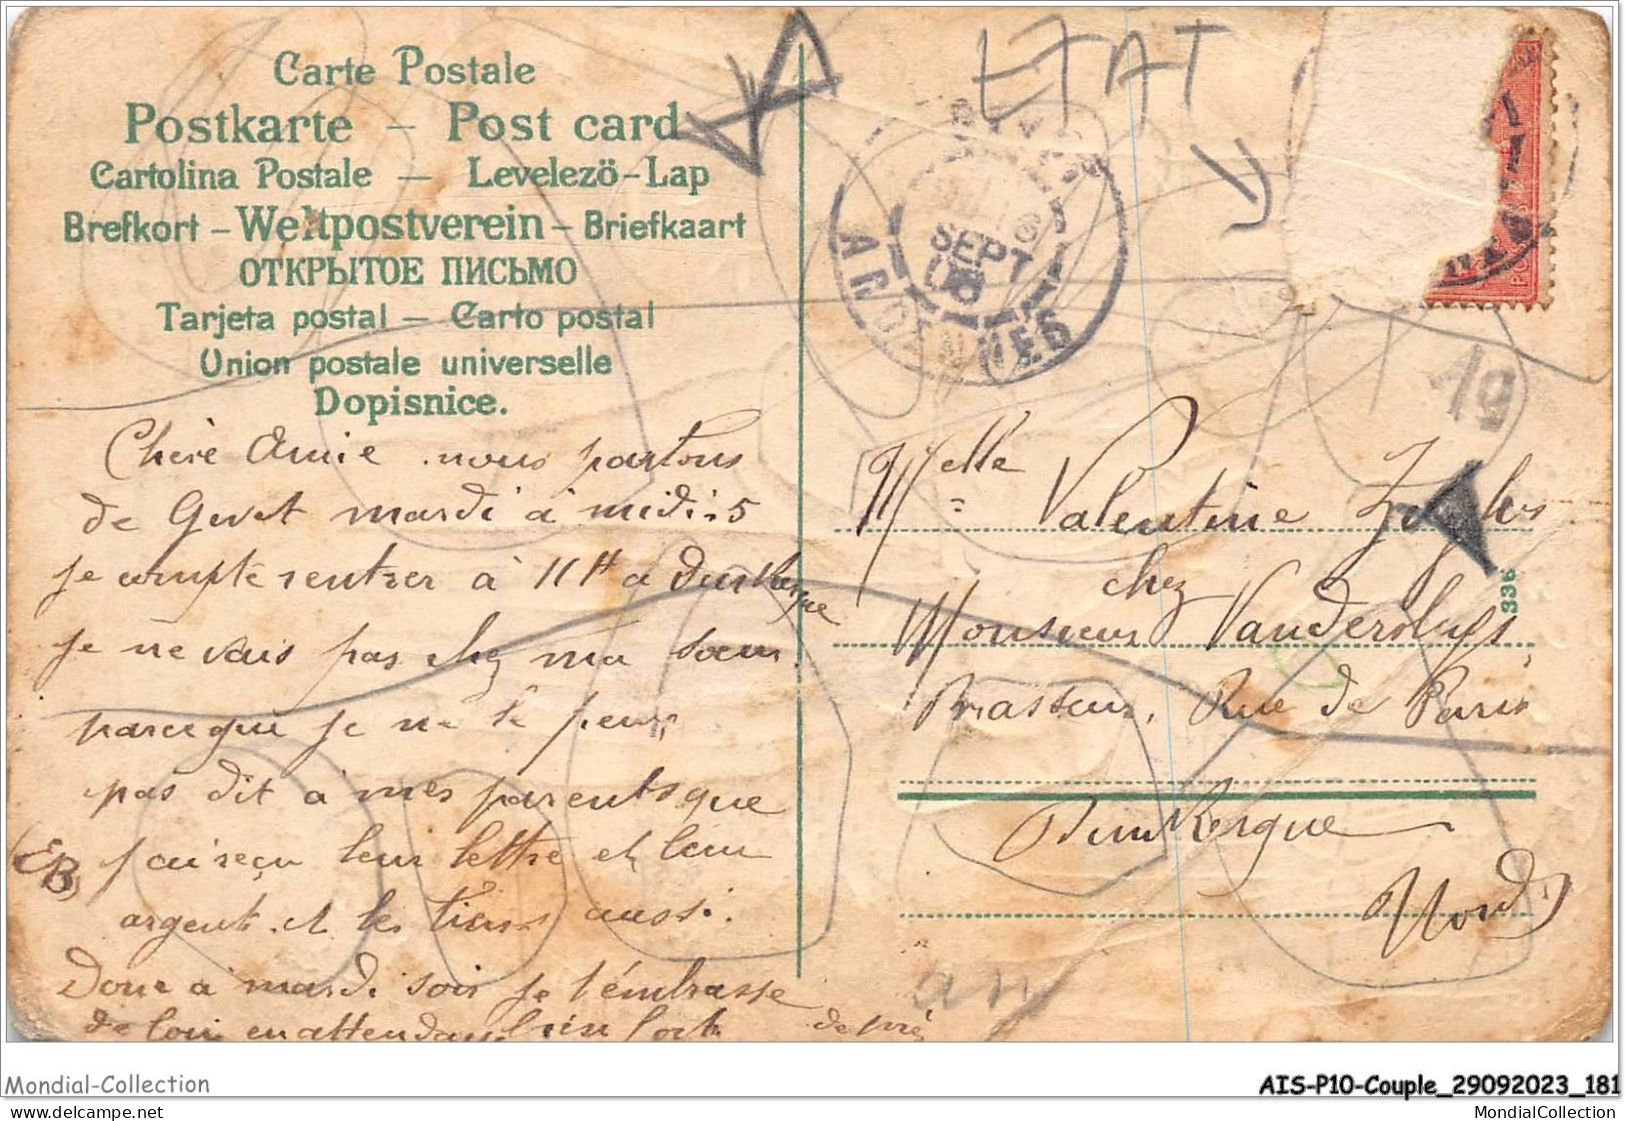 Carte Postale
Postkarte – Post card
Cartolina Postale — Levelező-Lap
Brefkort – Weltpostverein – Briefkaart
ОТКРЫТОЕ ПИСЬМО
Tarjeta postal — Carto postal
Union postale universelle
Dopisnice.
ETAT
SEPT
08
ARDENNES
19
Chère Amie nous partons
de Givet mardi à midi 5
je compte rentrer à 11H a Dunkerque
je ne vais pas chez ma soeur
parceque je ne
pas dit à mes parents que
j'ai reçu leur lettre et leur
argent et les tiens aussi.
Donc à mardi soir je t'embrasse
de loin en attendant bien fort de près
EB
Melle Valentine
chez
Monsieur Vandersluys
Brasseur, Rue de Paris
Dunkerque
Nord
336
an
Mondial-Collection
AIS-P10-Couple_29092023_181
www.delcampe.net
MondialCollection